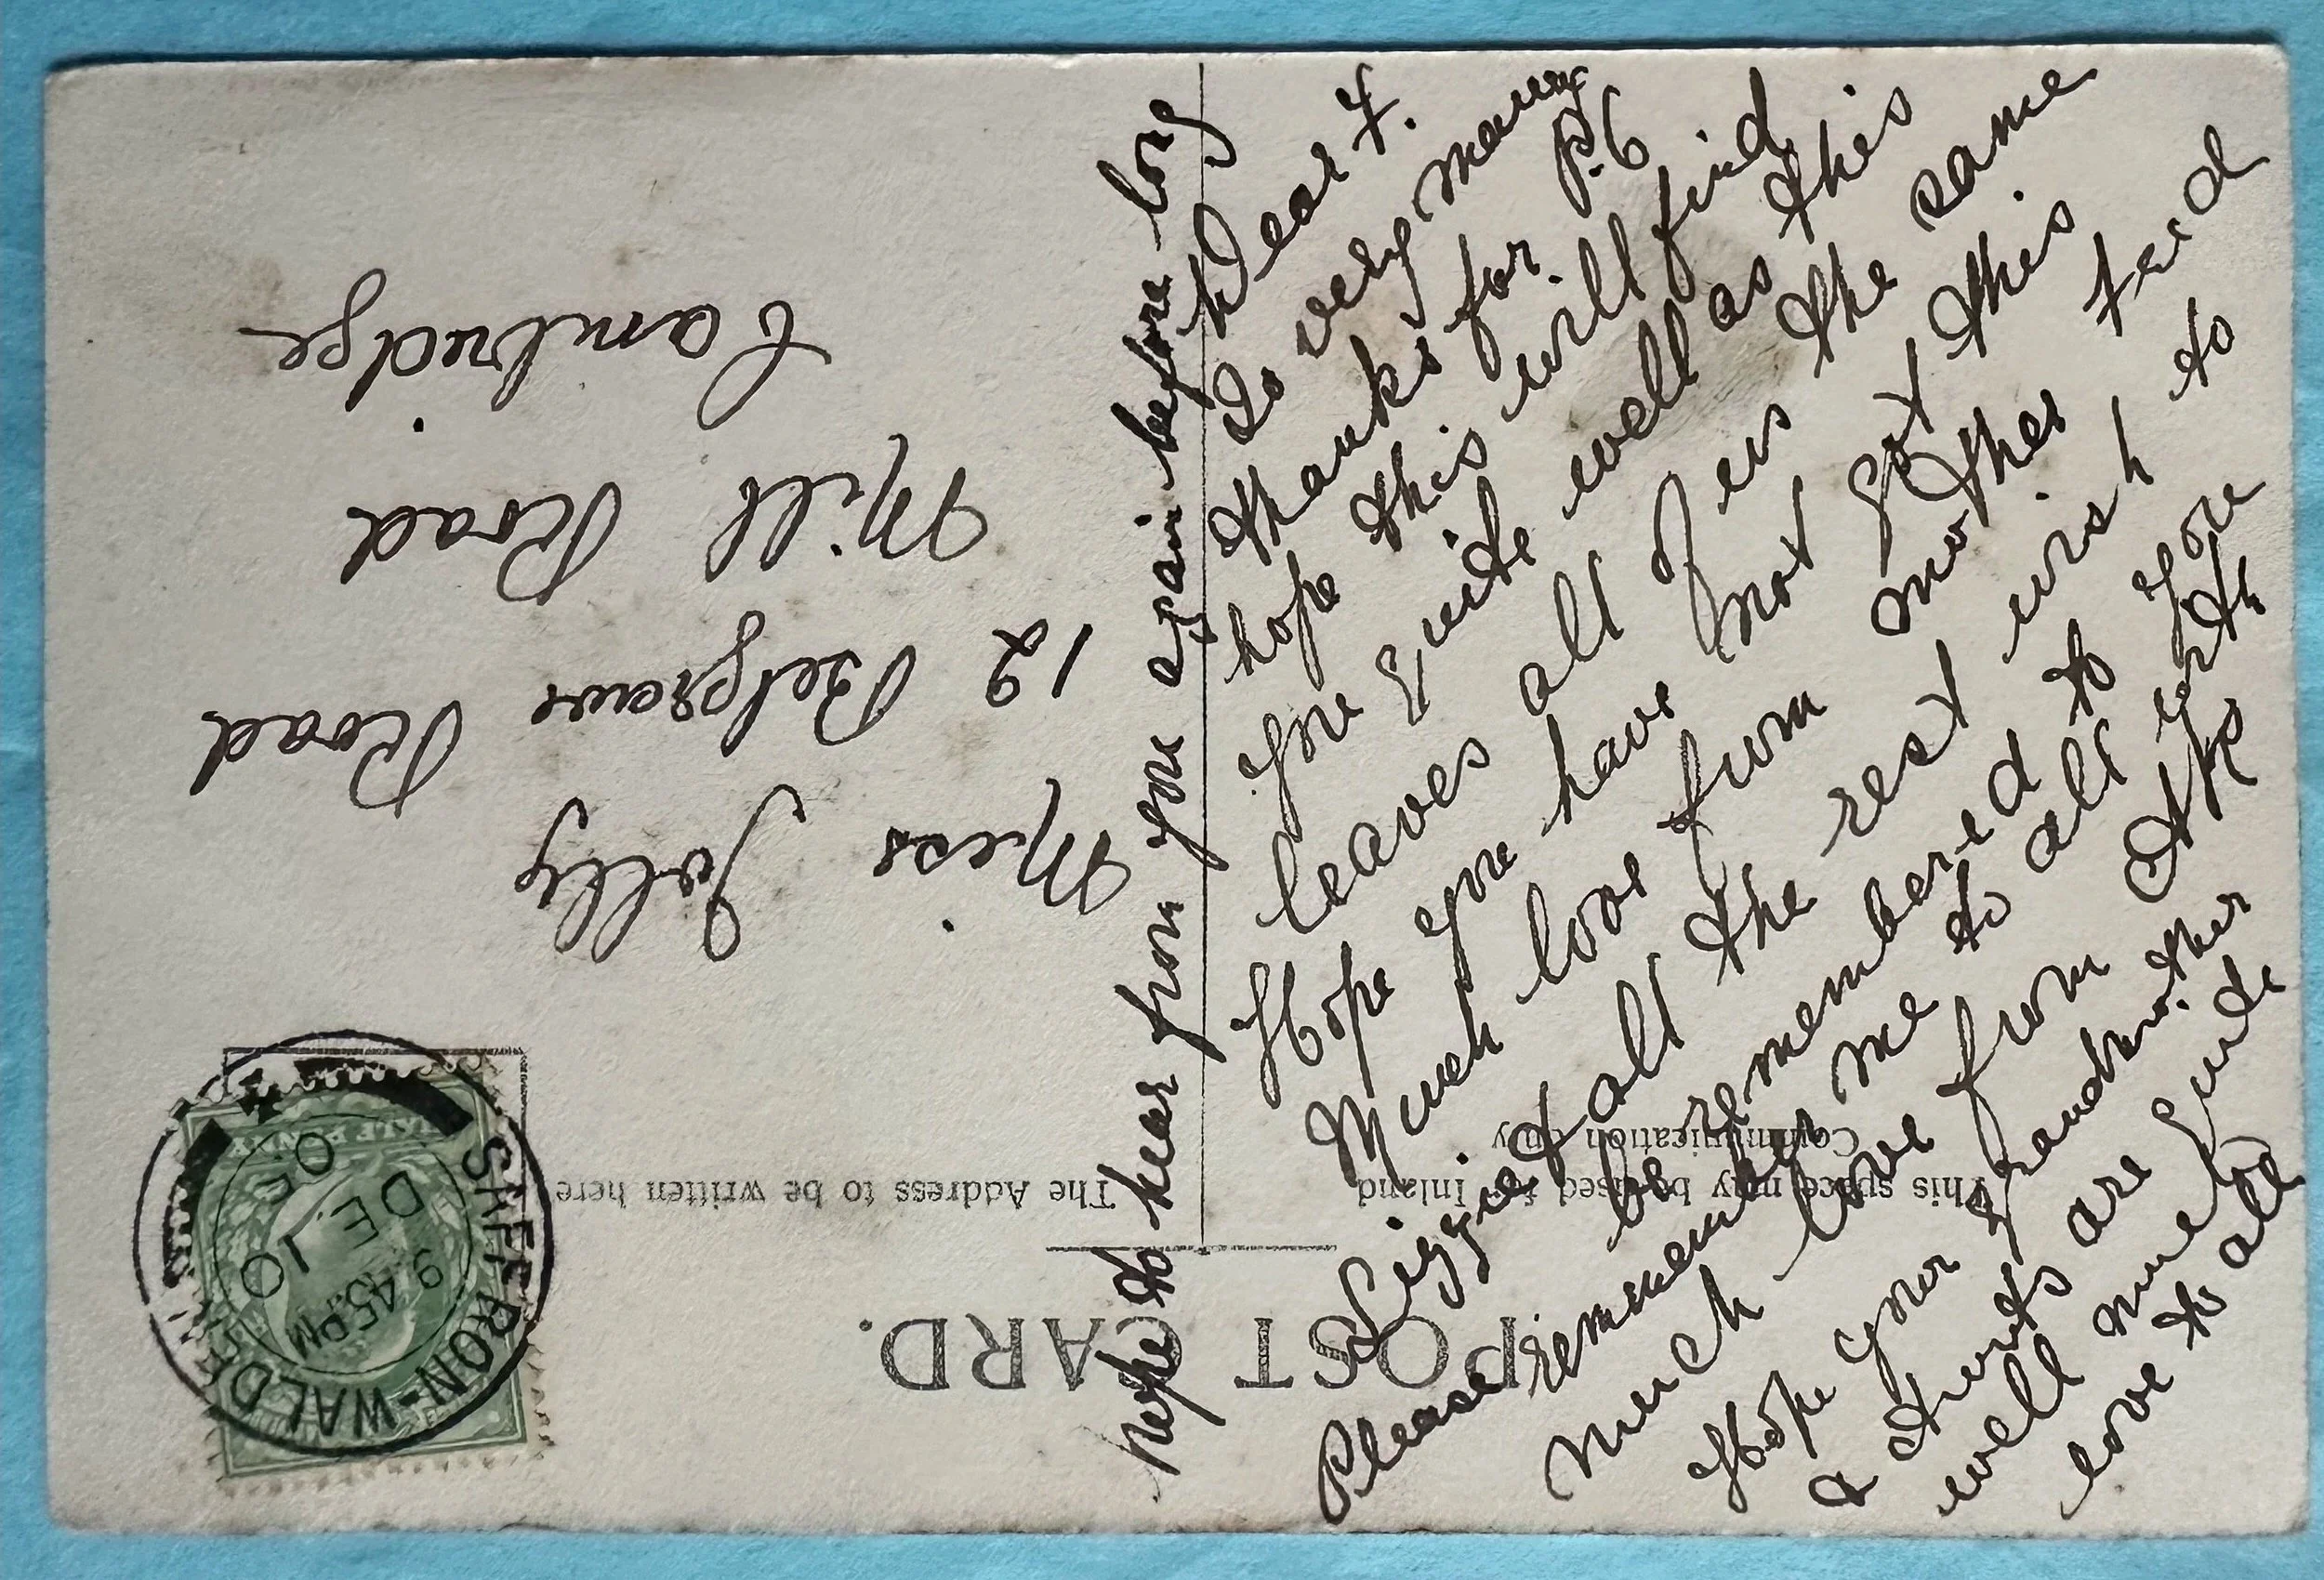 POST CARD.
This space may be used for Inland
Communication only
The Address to be written here
SAFFRON-WALDEN
9.45 PM
DE 10
05
HALF PENNY
Miss Jolly
12 Belgrave Road
Mill Road
Cambridge
Dear F.
So very many
thanks for P.C
hope this will find
you quite well as this
leaves all of us the same
Hope you have not got this
Much love from mother Fred
Lizzie & all the rest wish to
be remembered to you
Please remember me to all with
much love from
Hope your grandmother
& Aunts are quite
well much
love to all
hope to hear from you again before long